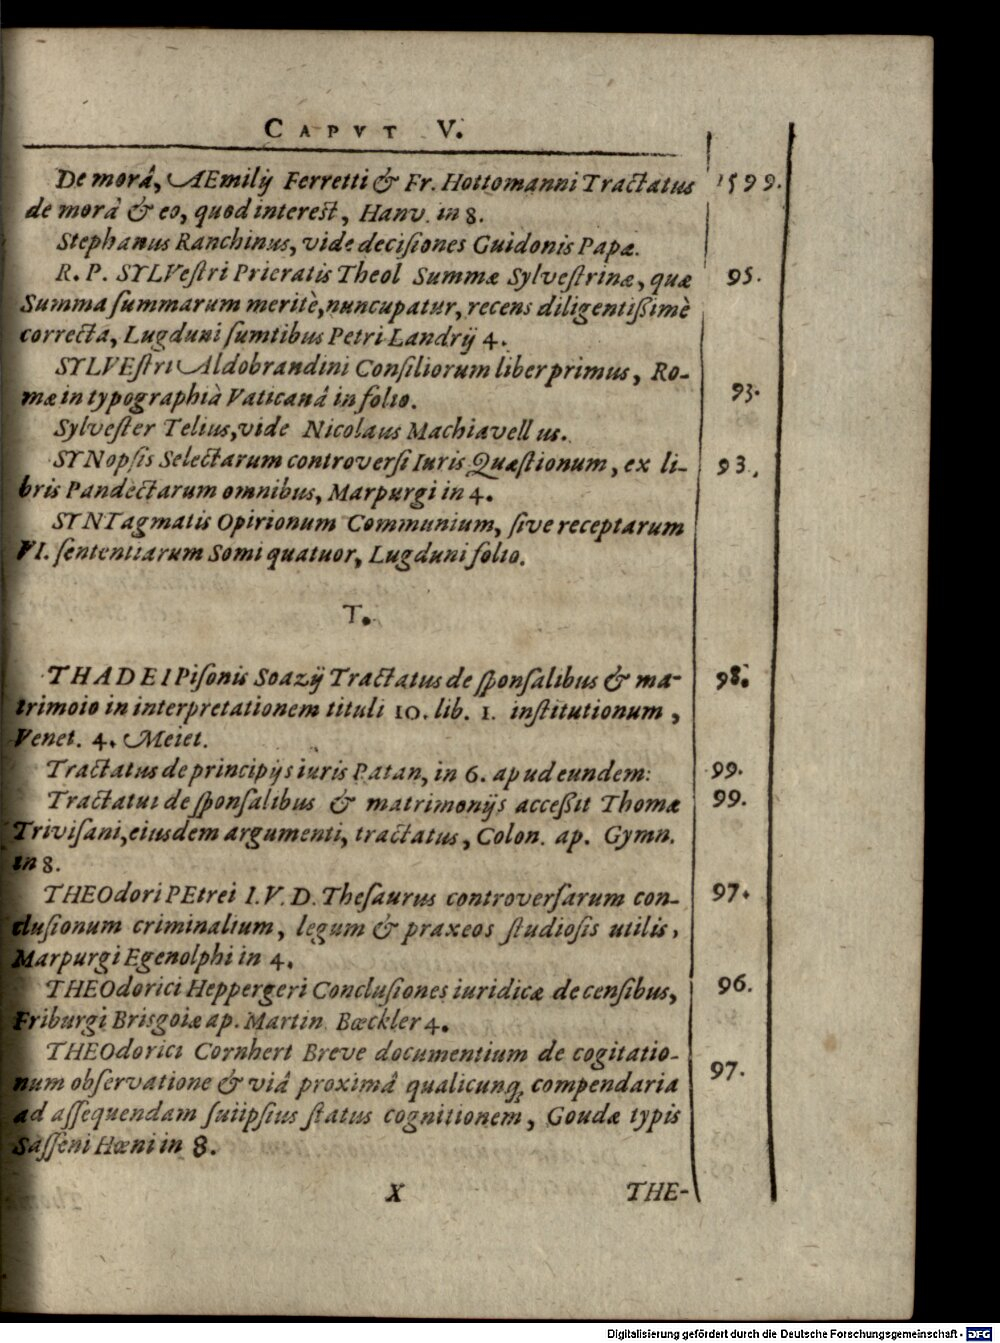 CAPVT V.
De morâ, AEmilij Ferretti & Fr. Hottomanni Tractatus 1599.
de morâ & eo, quod interest, Hanv. in 8.
Stephanus Ranchinus, vide decisiones Guidonis Papæ.
R. P. SYLVestri Prieratis Theol Summæ Sylvestrinæ, quæ 95.
Summa summarum meritè, nuncupatur, recens diligentissimè
correcta, Lugduni sumtibus Petri Landrij 4.
SYLVEstri Aldobrandini Consiliorum liber primus, Ro-
mæ in typographià Vaticanâ in folio. 93.
Sylvester Telius, vide Nicolaus Machiavell us.
SYNopsis Selectarum controversi Iuris Quæstionum, ex li- 93.
bris Pandectarum omnibus, Marpurgi in 4.
SYNTagmatis Opirionum Communium, sive receptarum
VI. sententiarum Somi quatuor, Lugduni folio.
T.
THADEI Pisonis Soazij Tractatus de sponsalibus & ma- 98.
trimoio in interpretationem tituli 10. lib. 1. institutionum,
Venet. 4. Meiet.
Tractatus de principijs iuris Patan, in 6. apud eundem: 99.
Tractatui de sponsalibus & matrimonijs accessit Thomæ 99.
Trivisani, eiusdem argumenti, tractatus, Colon. ap. Gymn.
in 8.
THEOdori PEtrei I. V. D. Thesaurus controversarum con- 97.
clusionum criminalium, legum & praxeos studiosis utilis,
Marpurgi Egenolphi in 4.
THEOdorici Heppergeri Conclusiones iuridicæ de censibus, 96.
Friburgi Brisgoiæ ap. Martin Bœckler 4.
THEOdorici Cornhert Breve documentium de cogitatio-
num observatione & viâ proximâ qualicunq; compendaria 97.
ad assequendam suiipsius status cognitionem, Goudæ typis
Sasseni Hœni in 8.
X THE-
Digitalisierung gefördert durch die Deutsche Forschungsgemeinschaft - DFG